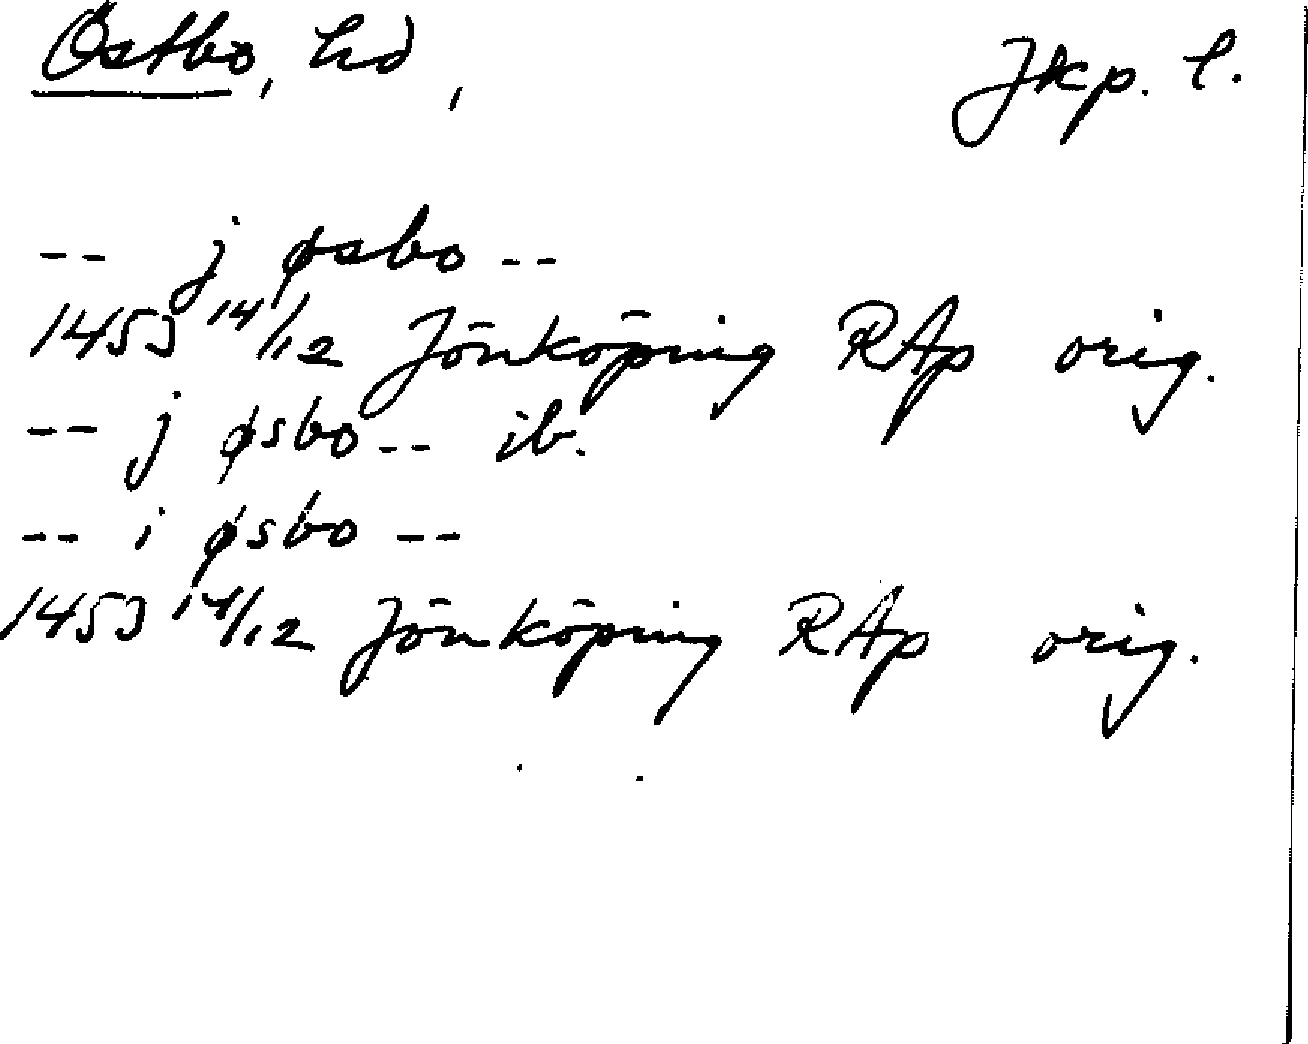 Östbo, hd, Jkp. l.
-- j øsbo --
1453 14/12 Jönköping RAp orig.
-- j øsbo -- ib.
-- i øsbo --
1453 14/12 Jönköping RAp orig.